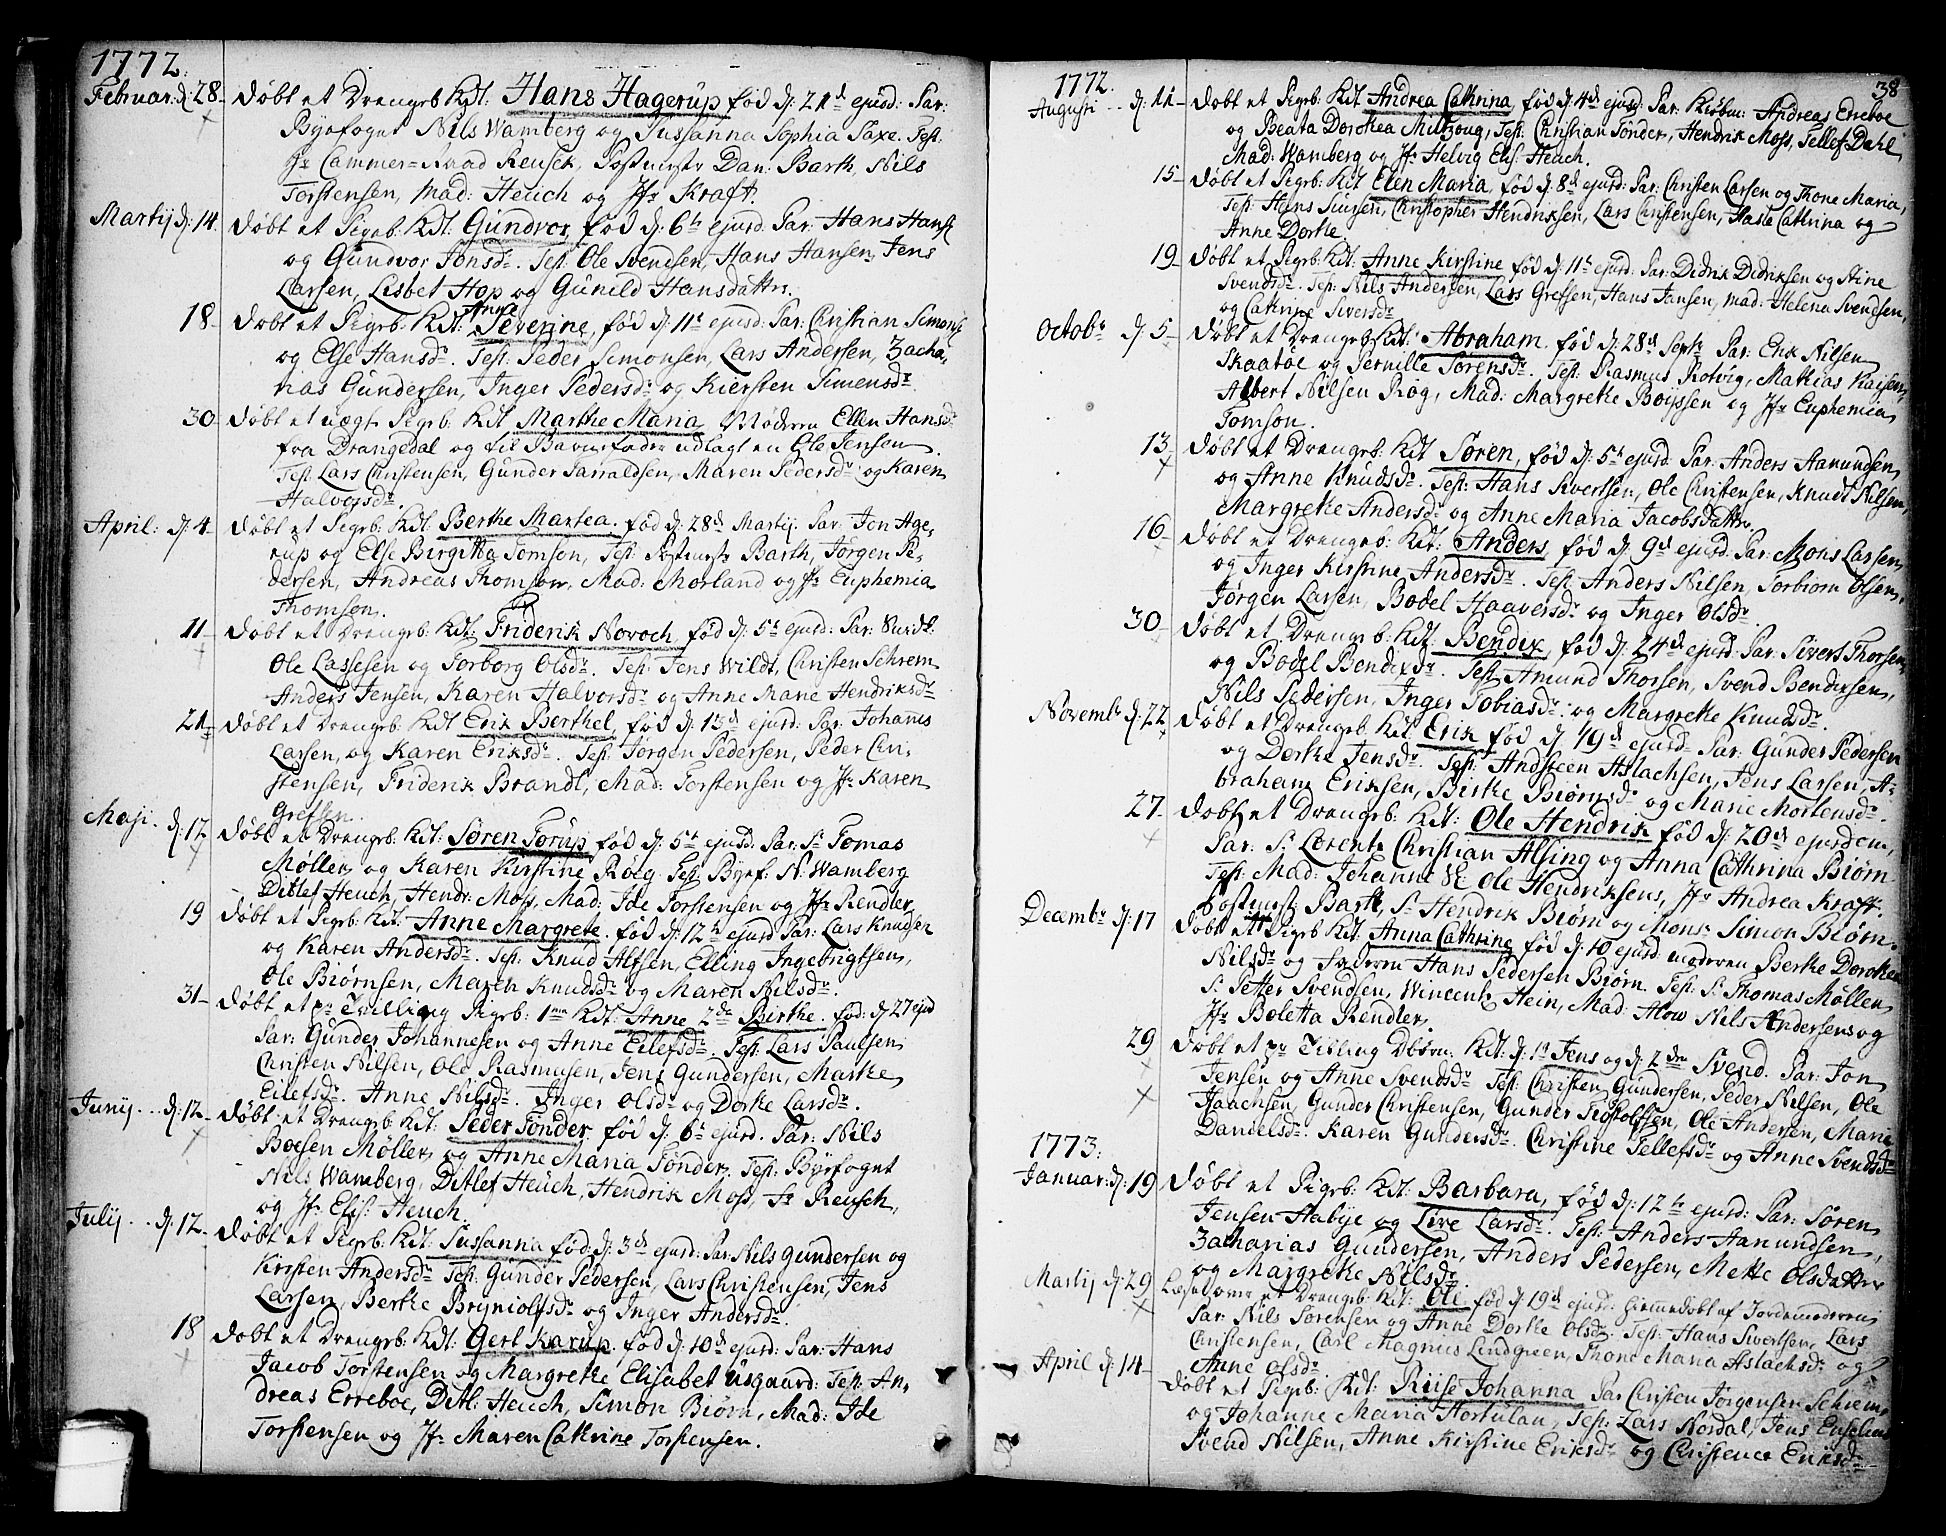 1772.
Februar: d: 28. Døbt et Drengeb: Kdt: Hans Hagerup fød d: 21d ejusd: Par:
Byefoget Nils Wamberg og Sussanna Sophia Saxe. Test:
Hr Cammer=Raad Reusch, Postmestr Dan: Barth, Nils
Torstensen, Mad: Heuch og Jfr Kraft.
Martij d: 14. Døbt et Pigeb: Kdt: Gundvor, fød d: 6te ejusd: Par: Hans Hans:
og Gundvor Jonsdr. Test: Ole Svendsen, Hans Hansen, Jens
Larsen, Lisbet Hop og Gunild Hansdattr.
Anne
18. Døbt et Pigrb: Kdt: Severine, fød d: 11t ejusd: Par: Christian Simons:
og Else Hansdr. Test: Peder Simonsen, Lars Andersen, Zacha,
rias Gundersen, Inger Pedersdr og Kiersten Simensdr
30. Døbt et uægte Pigeb: Kdt Marthe Maria Moderen Ellen Hansdr
fra Drangedal og til Barnefader udlagt en Ole Jenson
Test Lars Christensen, Gunder Tarraldsen, Maren Pedersdr og Karen
Halvorsdr.
April: d: 4. Døbt et Pigrb: Kdt: Berthe Martea. fød d: 28d Martij. Par: Jon Age,
rup og Else Birgitte Tomson, Test: Postmestr Barth, Jørgen Pe,
dersen, Andreas Thomson, Mad: Morland og Jfr Euphemia
Thomson.
11. Døbt et Drengeb: Kdt: Friderik Novoch, fød d: 5t ejusd: Par:
Ole Lassesen og Torborg Olsdr. Test: Jens Wildt, Christen Schrem
Anders Jensen, Karen Halvorsdr og Anne Marie Hendriksdr
21. Døbt et Drengeb: Kdt Erik Berthel, fød d: 13d ejusd: Par: Johanes
Larsen, og Karen Eriksdr. Test: Jørgen Pedersen, Peder Chri,
stensen, Friderik Brandt, Mad: Torstensen og Jfr Karen
Grefsen.
Maji. d: 12 Døbt et Drengeb: Kdt: Søren Torup, fød d: 5t ejusd: Par: Sr Tomas
Møller og Karen Kirstine Røeg. Test: Byef: N: Wamberg
Ditlef Heuch, Hendr: Moss, Mad: Ide Torstensen og Jfr Rendler.
19 Døbt et Pigrb: Kdt: Anne Margrete. fød d: 12t ejusd Par: Lars Knudsen
og Karen Andersdr. Test: Knud Alfsen, Elling Ingebrigtsen,
Ole Biørnsen, Maren Knudsdr og Maren Nilsdr.
31. Døbt et pr Tvilling Pigrb: 1ma Kdt: Anne 2de Birthe. fød: d: 27 ejusd
Par: Gunder Johannesen og Anne Eilefsdr. Test: Lars Paulsen
Christen Nilsen, Ole Rasmusen, Jens Gundersen, Marthe
Eilefsdr. Anne Nilsdr. Inger Olsdr og Dorthe Larsdr.
Junij. d: 12. Døbt et Drengeb: Kdt: Peder Tønder, fød d: 6t ejusd. Par: Nils
Boesen Møller og Anne Maria Tønder. Test: Byefoget
Nils Wamberg, Ditlef Heuch, Hendrik Moss, Fr Reusch,
og Jfr Elis: Heuch.
Julij. d: 12. Døbt et Pigrb: Kdt: Sussanna fød: d: 3d ejusd: Par: Nils Gundersen og
Kirsten Andersdr Test: Gunder Pedersen, Lars Christensen, Jens
Larsen, Berthe Bryniolfsdr og Inger Andersdr.
18 Døbt et Drengeb: Kdt: Gert Karup. fød d: 10d ejusd: Par: Hans
Jacob Torstensen og Margrethe Elisabet Usgaard: Test: An,
dreas Erreboe, Ditl: Heuch, Simon Biørn, Mad: Ide
Torstensen og Jfr Maren Cathrine Torstensen.
38
1772.
Augusti d: 11. Døbt et Pigrb: Kdt Andrea Cathrina, fød d: 4d ejusd: Par: Kiøbm: Andreas Erreboe
og Beata Dorothea Miltzoug, Test: Christian Tønder, Hendrik Moss, Tellef Dahl
Mad: Wamberg og Jfr Helvig Elis: Heuch.
15. Døbt et Pigrb: Kdt Elen Maria, fød d: 8d ejusd: Par: Christen Larsen og Thone Maria,
Test: Hans Siursen, Christopher Hendriksen, Lars Christensen, Hasta Cathrina og
Anne Dorthe
19. Døbt et Pigrb: Kdt: Anne Kirstine fød d: 11t ejusd: Par: Didrik Didriksen og Stine
Svendsdr. Test: Nils Andersen, Lars Grefsen, Hans Jansen, Mad: Helena Svendsen,
og Cathrine Siversdr
Octobr d: 5. Døbt et Drengeb: Kdt: Abraham. fød d: 28d Septr Par: Erik Nilsen
Skaatøe og Pernille Sørensdr. Test: Rasmus Rotvig, Mathias Kaysen,
Albert Nilsen Røg, Mad: Margrethe Boyssen og Jfr Euphemia
Tomson.
13. Døbt et Drengeb: Kdt Søren, fød d: 5t ejusd Par: Anders Aanundsen,
og Anne Knudsdr. Test: Hans Sivertsen, Ole Christensen, Knudt Nilsen,
Margrethe Andersdr og Anne Maria Jacobsdattr.
16. Døbt et Drengeb: Kdt: Anders, fød d: 9d ejusd: Par: Mons Larsen
og Inger Kirstine Andersdr. Test: Anders Nilsen, Torbiorn Olsen,
Jørgen Larsen, Bodel Haaversdr og Inger Olsdr.
30. Døbt et Drengeb: Kdt: Bendix, fød d: 24d ejusd: Par: Sivert Thorsen
og Bodel Bendixdr. Test: Amund Thorsen, Svend Bendixsen,
Nils Pedersen, Inger Tobiasdr: og Margrethe Knudsdr.
Novembr d: 22. Døbt et Drengeb: Kdt: Erik fød d 19d ejusd: Par: Gunder Pedersen
og Dorthe Jensdr. Test: Andsteen Aslachsen, Jens Larsen, A,
braham Eriksen, Birthe Biørnsdr og Marie Mortensdr.
27. Døbt et Drengeb: Kdt: Ole Hendrik fød d: 20d ejusdem,
Par: Sr Lorentz Christian Alsing og Anna Cathrina Biørn
Test: Mad: Johanne Ole Hendriksens, Jfr Andrea Kraft.
Postmestr Barth, Sr Hendrik Biørn og Monsr Simon Biørn.
Decembr d: 17 Døbt et Pigrb Kdt: Anna Cathrine fød d: 10 ejusd: moderen Berthe Dorothea
Nilsdr og Faderen Hans Pedersen Biørn. Test: Sr Thomas Møller
Sr Petter Svendsen, Wincentz Hein, Mad: Alow Nils Andersens og
Jfr Boletta Rendler.
29 Døbt et pr Tvilling Dbørn: Kdt: d: 1t Jens og d: 2den Svend. Par: Jon
Jensen og Anne Svendsdr Test: Christen Gundersen, Peder Nilsen, Ole
Haachsen, Gunder Christensen, Gunder Tiostolfsen, Ole Andersen, Maria
Danielsdr. Karen Gundersdr. Christine Tellefsdr og Anne Svendsdr
1773.
Januar: d: 19 Døbt et Pigrb: Kdt: Barbara, fød d: 12te ejusd: Par: Søren
Jensen Aabye og Live Larsdr. Test: Anders Aanundsen,
Zacharias Gundersen, Anders Pedersen, Mette Olsdattr
og Margrethe Nilsdr.
Martij d: 29 Læst over et Drengeb: Kdt: Ole fød d: 19d ejusd: hiemmedøbt af Jordemoderen
Par: Nils Sørensen og Anne Dorthe Olsdr. Test: Hans Sivertsen, Lars
Christensen, Carl Magnus Lindgreen, Thone Maria Aslachsdr og
Anne Olsdr.
April d: 14. Døbt et Pigrb: Kdt: Riise Johanna Par Christen Jørgensen Schrem,
og Johanne Maria Hortulan, Test: Lars Nordal, Jens
Svend Nilsen, Anne Kirstine Eriksdr og Christence Eriksdr